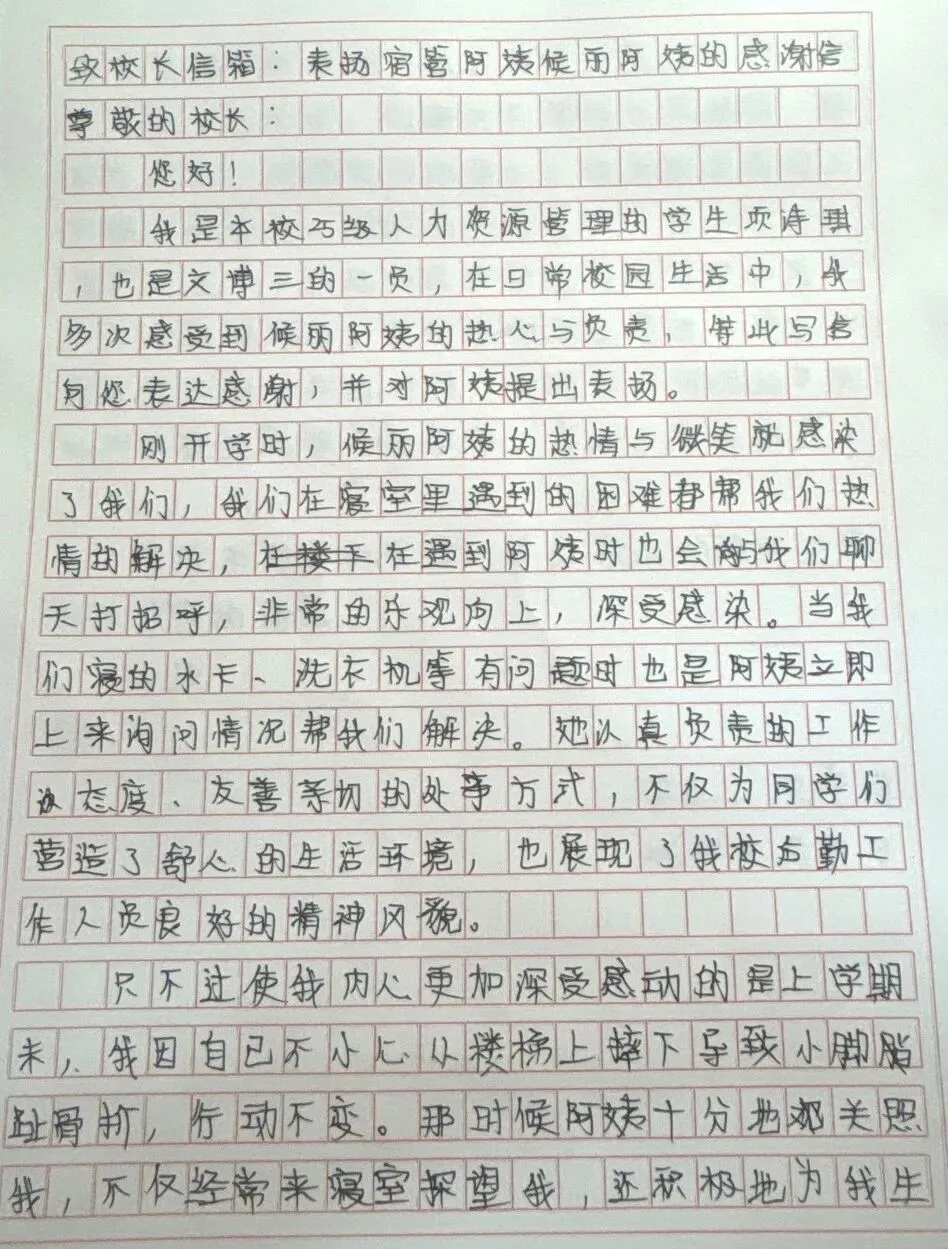 致校长信箱：表扬宿管阿姨候丽阿姨的感谢信
尊敬的校长：
您好！
我是本校25级人力资源管理的学生项诗琪
，也是文博三的一员，在日常校园生活中，我
多次感受到候丽阿姨的热心与负责，特此写信
向您表达感谢，并对阿姨提出表扬。
刚开学时，候丽阿姨的热情与微笑就感染
了我们，我们在寝室里遇到的困难都帮我们热
情的解决，在遇到阿姨时也会与我们聊
天打招呼，非常的乐观向上，深受感染。当我
们寝的水卡、洗衣机等有问题时也是阿姨立即
上来询问情况帮我们解决。她认真负责的工作
态度、友善亲切的处事方式，不仅为同学们
营造了舒心的生活环境，也展现了我校后勤工
作人员良好的精神风貌。
只不过使我内心更加深受感动的是上学期
末，我因自己不小心从楼梯上摔下导致小脚脂
趾骨折，行动不变。那时候阿姨十分地关照
我，不仅经常来寝室探望我，还积极地为我生